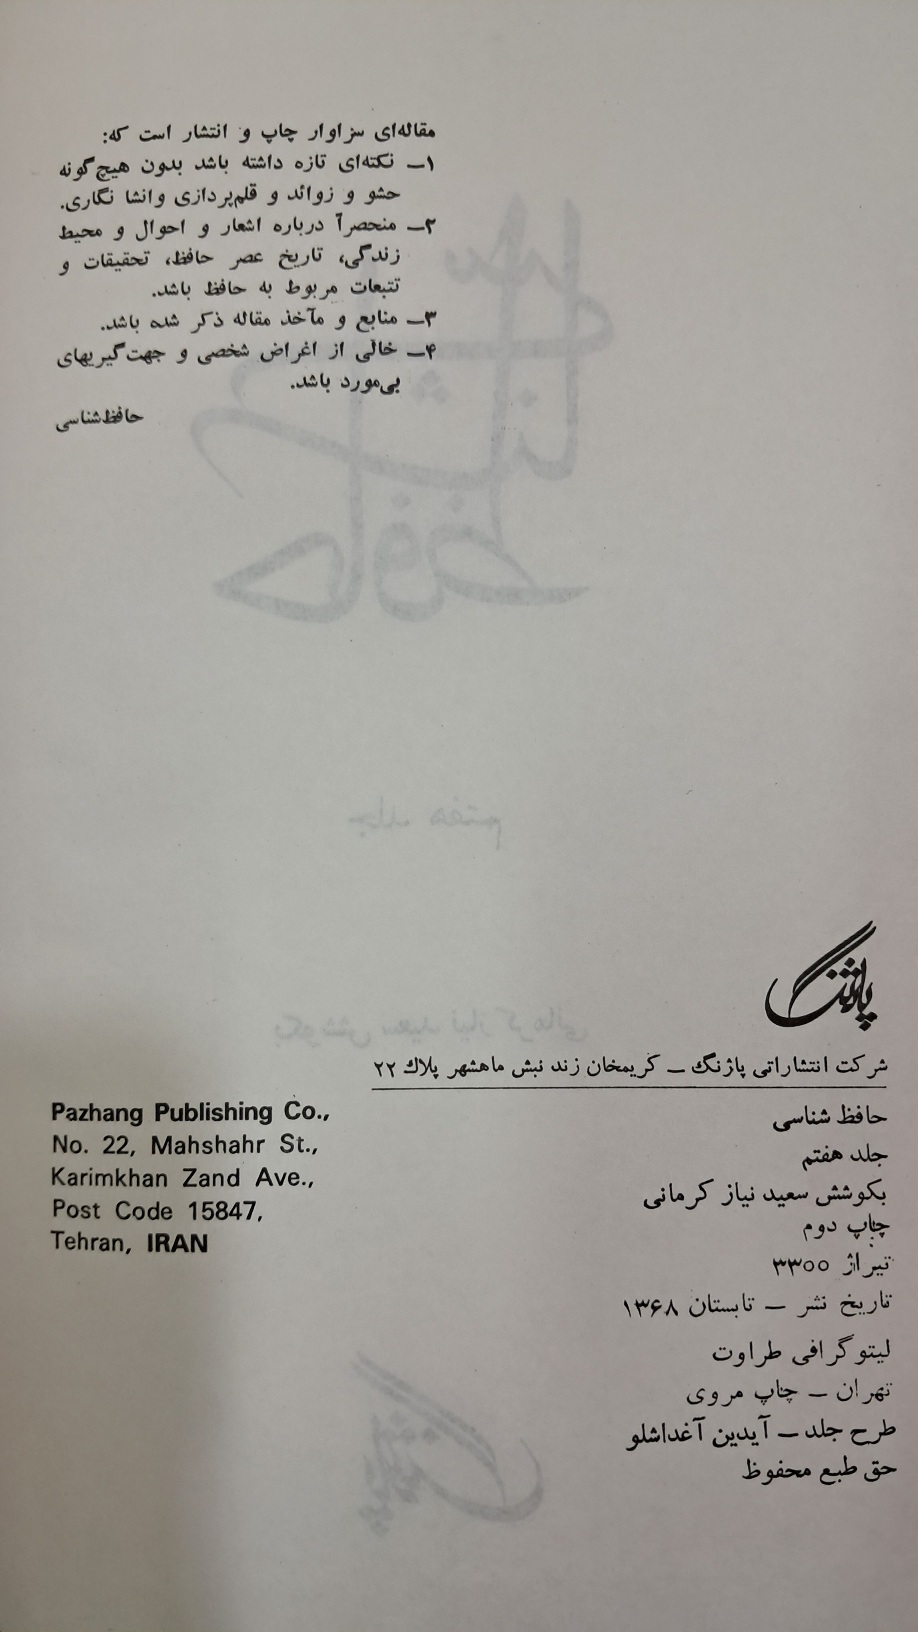 مقاله‌ای سزاوار چاپ و انتشار است که:
۱ــ نکته‌ای تازه داشته باشد بدون هیچ‌گونه
حشو و زوائد و قلم‌پردازی وانشا نگاری.
۲ــ منحصراً درباره اشعار و احوال و محیط
زندگی، تاریخ عصر حافظ، تحقیقات و
تتبعات مربوط به حافظ باشد.
۳ــ منابع و مآخذ مقاله ذکر شده باشد.
۴ــ خالی از اغراض شخصی و جهت‌گیریهای
بی‌مورد باشد.
حافظ‌شناسی
پاژنگ
شرکت انتشاراتی پاژنگ ــ کریمخان زند نبش ماهشهر پلاک ۲۲
Pazhang Publishing Co.,
No. 22, Mahshahr St.,
Karimkhan Zand Ave.,
Post Code 15847,
Tehran, IRAN
حافظ شناسی
جلد هفتم
بکوشش سعید نیاز کرمانی
چاپ دوم
تیراژ ۳۳۰۰
تاریخ نشر ــ تابستان ۱۳۶۸
لیتوگرافی طراوت
تهران ــ چاپ مروی
طرح جلد ــ آیدین آغداشلو
حق طبع محفوظ